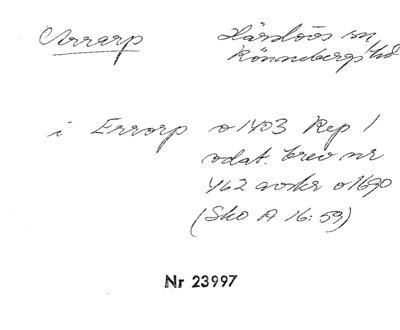 Arrarp Härslövs sn
Rönnebergs hd
i Errorp o 1403 Rep 1
odat. brev nr
462 avskr o 1690
(Sko A 16:59)
Nr 23997